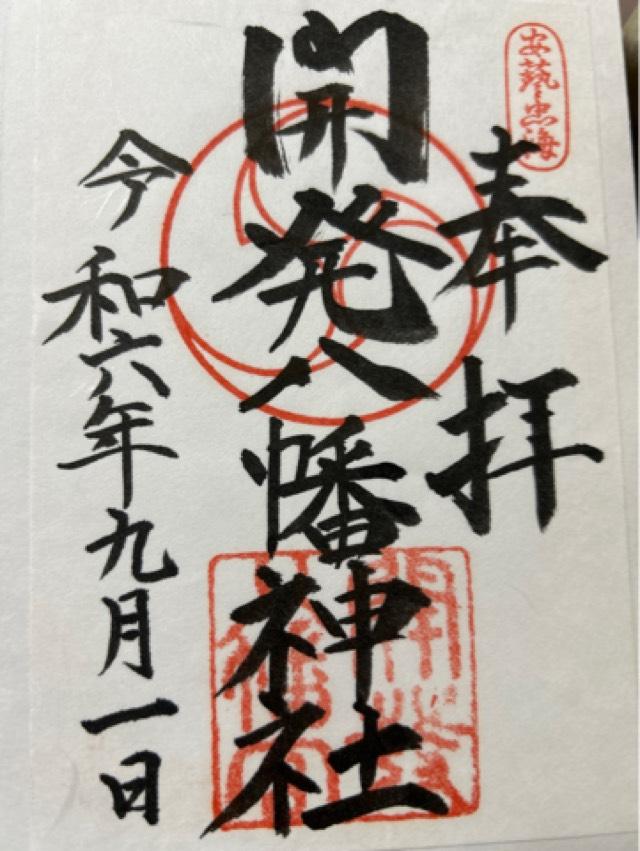 安藝忠海
奉拝
開発八幡神社
令和六年九月一日